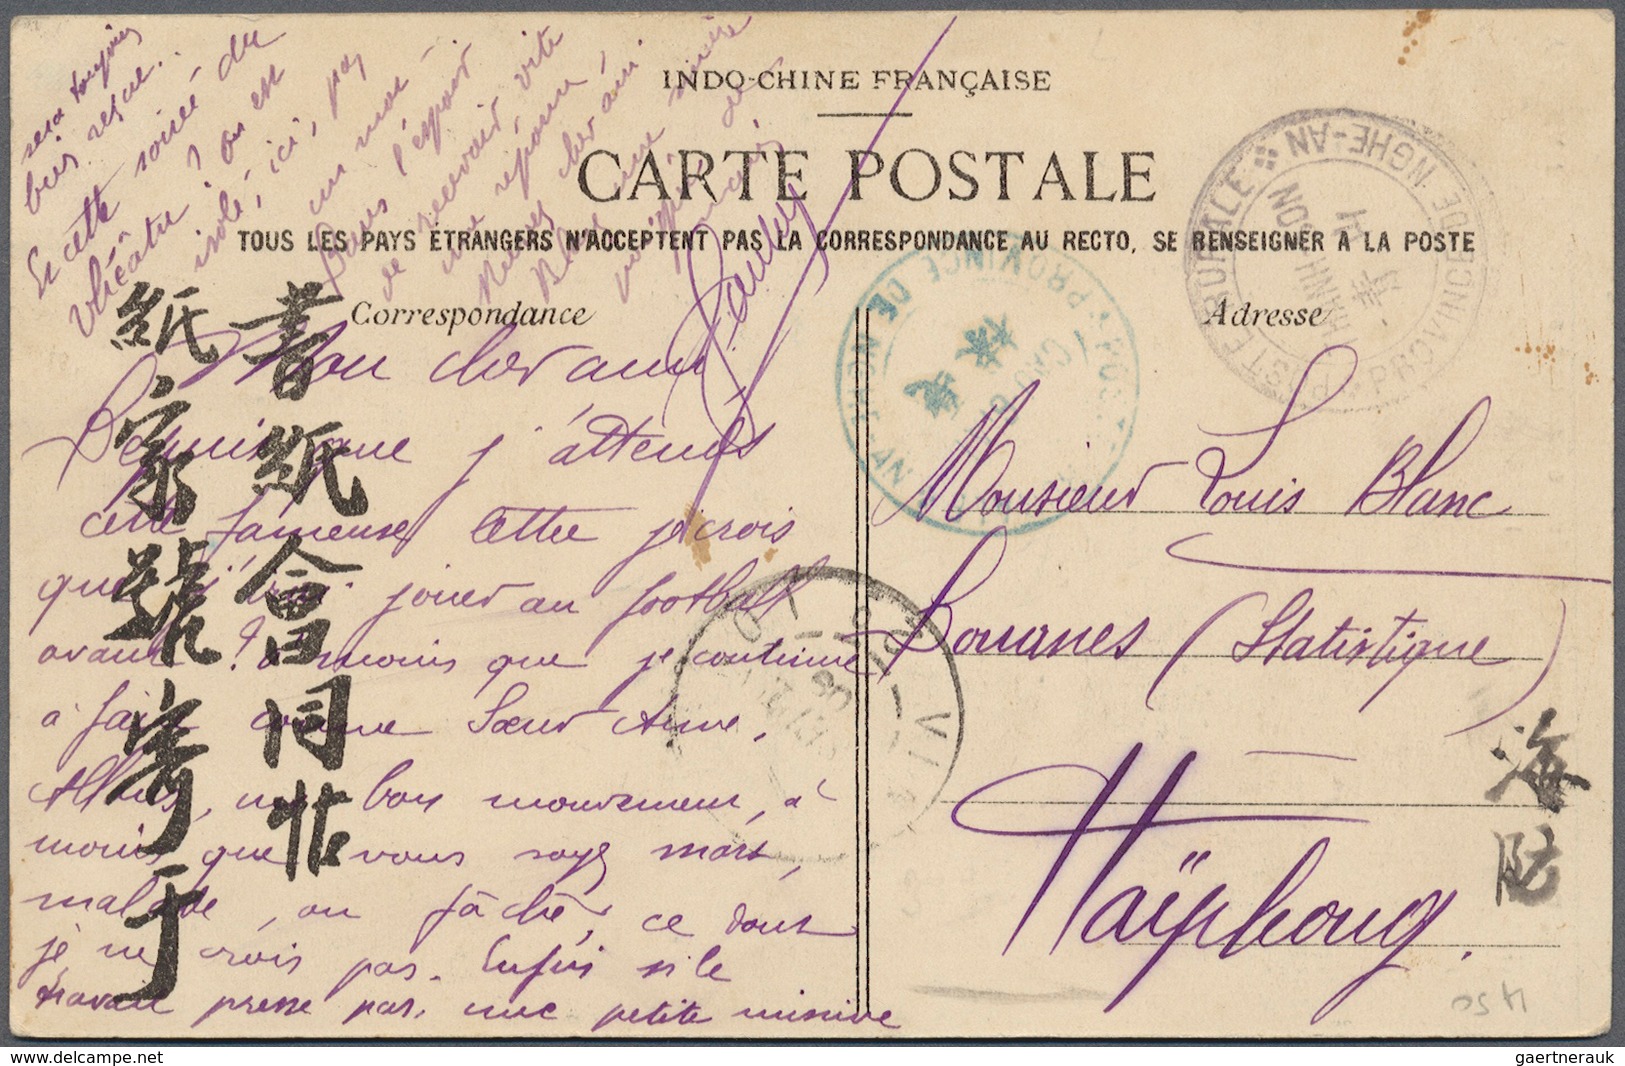 INDO-CHINE FRANÇAISE
CARTE POSTALE
TOUS LES PAYS ÉTRANGERS N'ACCEPTENT PAS LA CORRESPONDANCE AU RECTO, SE RENSEIGNER A LA POSTE
Correspondance
Adresse
Mon cher ami
Depuis que j'attends
cette fameuse lettre je crois
que j' jouer au football
avant? à moins que je continue
à faire comme Sœur Anne.
Allons, un bon mouvement, à
moins que vous soyez mort,
malade, ou fâché, ce dont
je ne crois pas. Enfin si le
travail presse pas, une petite missive
sera toujours
bien reçue.
Et cette soirée du
théâtre? On est
isolé, ici, pas
un mot.
Dans l'espoir
de recevoir vite
une réponse,
cher ami
Blanc, une
poignée de
Monsieur Louis Blanc
Douanes (Statistique)
Haïphong.
書紙會同帖
紙家號寄于
海
防
POSTE RURALE
PROVINCE DE NGHE-AN
PROVINCE DE
1450
gaertnerauk @ delcampe.net